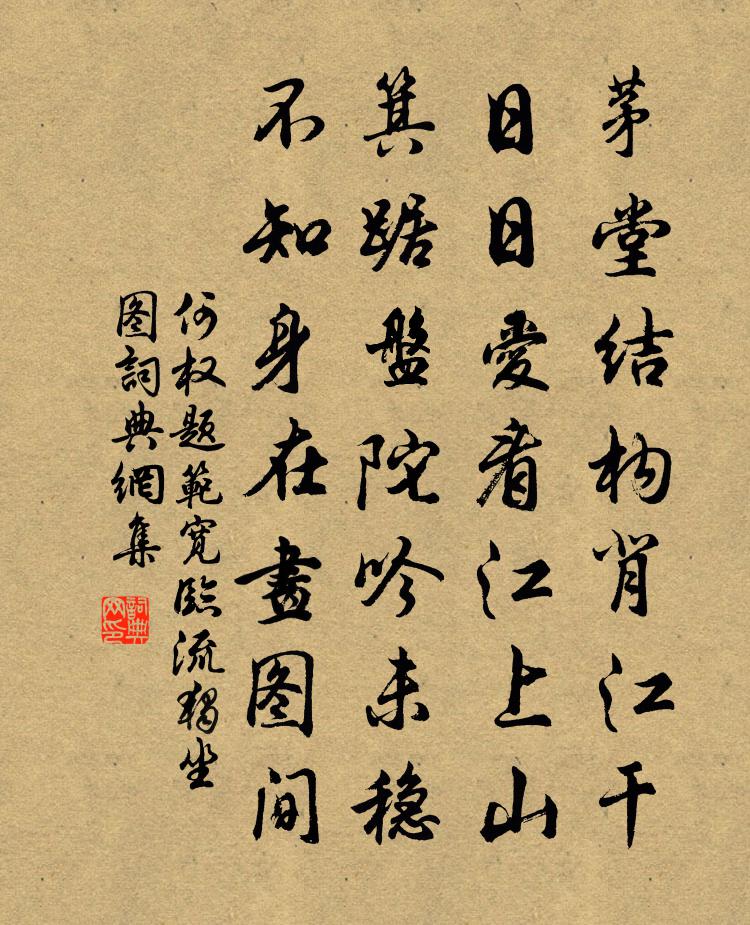 茅堂结构背江干
日日愛看江上山
箕踞盤陀吟未稳
不知身在畫图间
何权题範寬臨流獨坐
图詞典網集
詞典网印